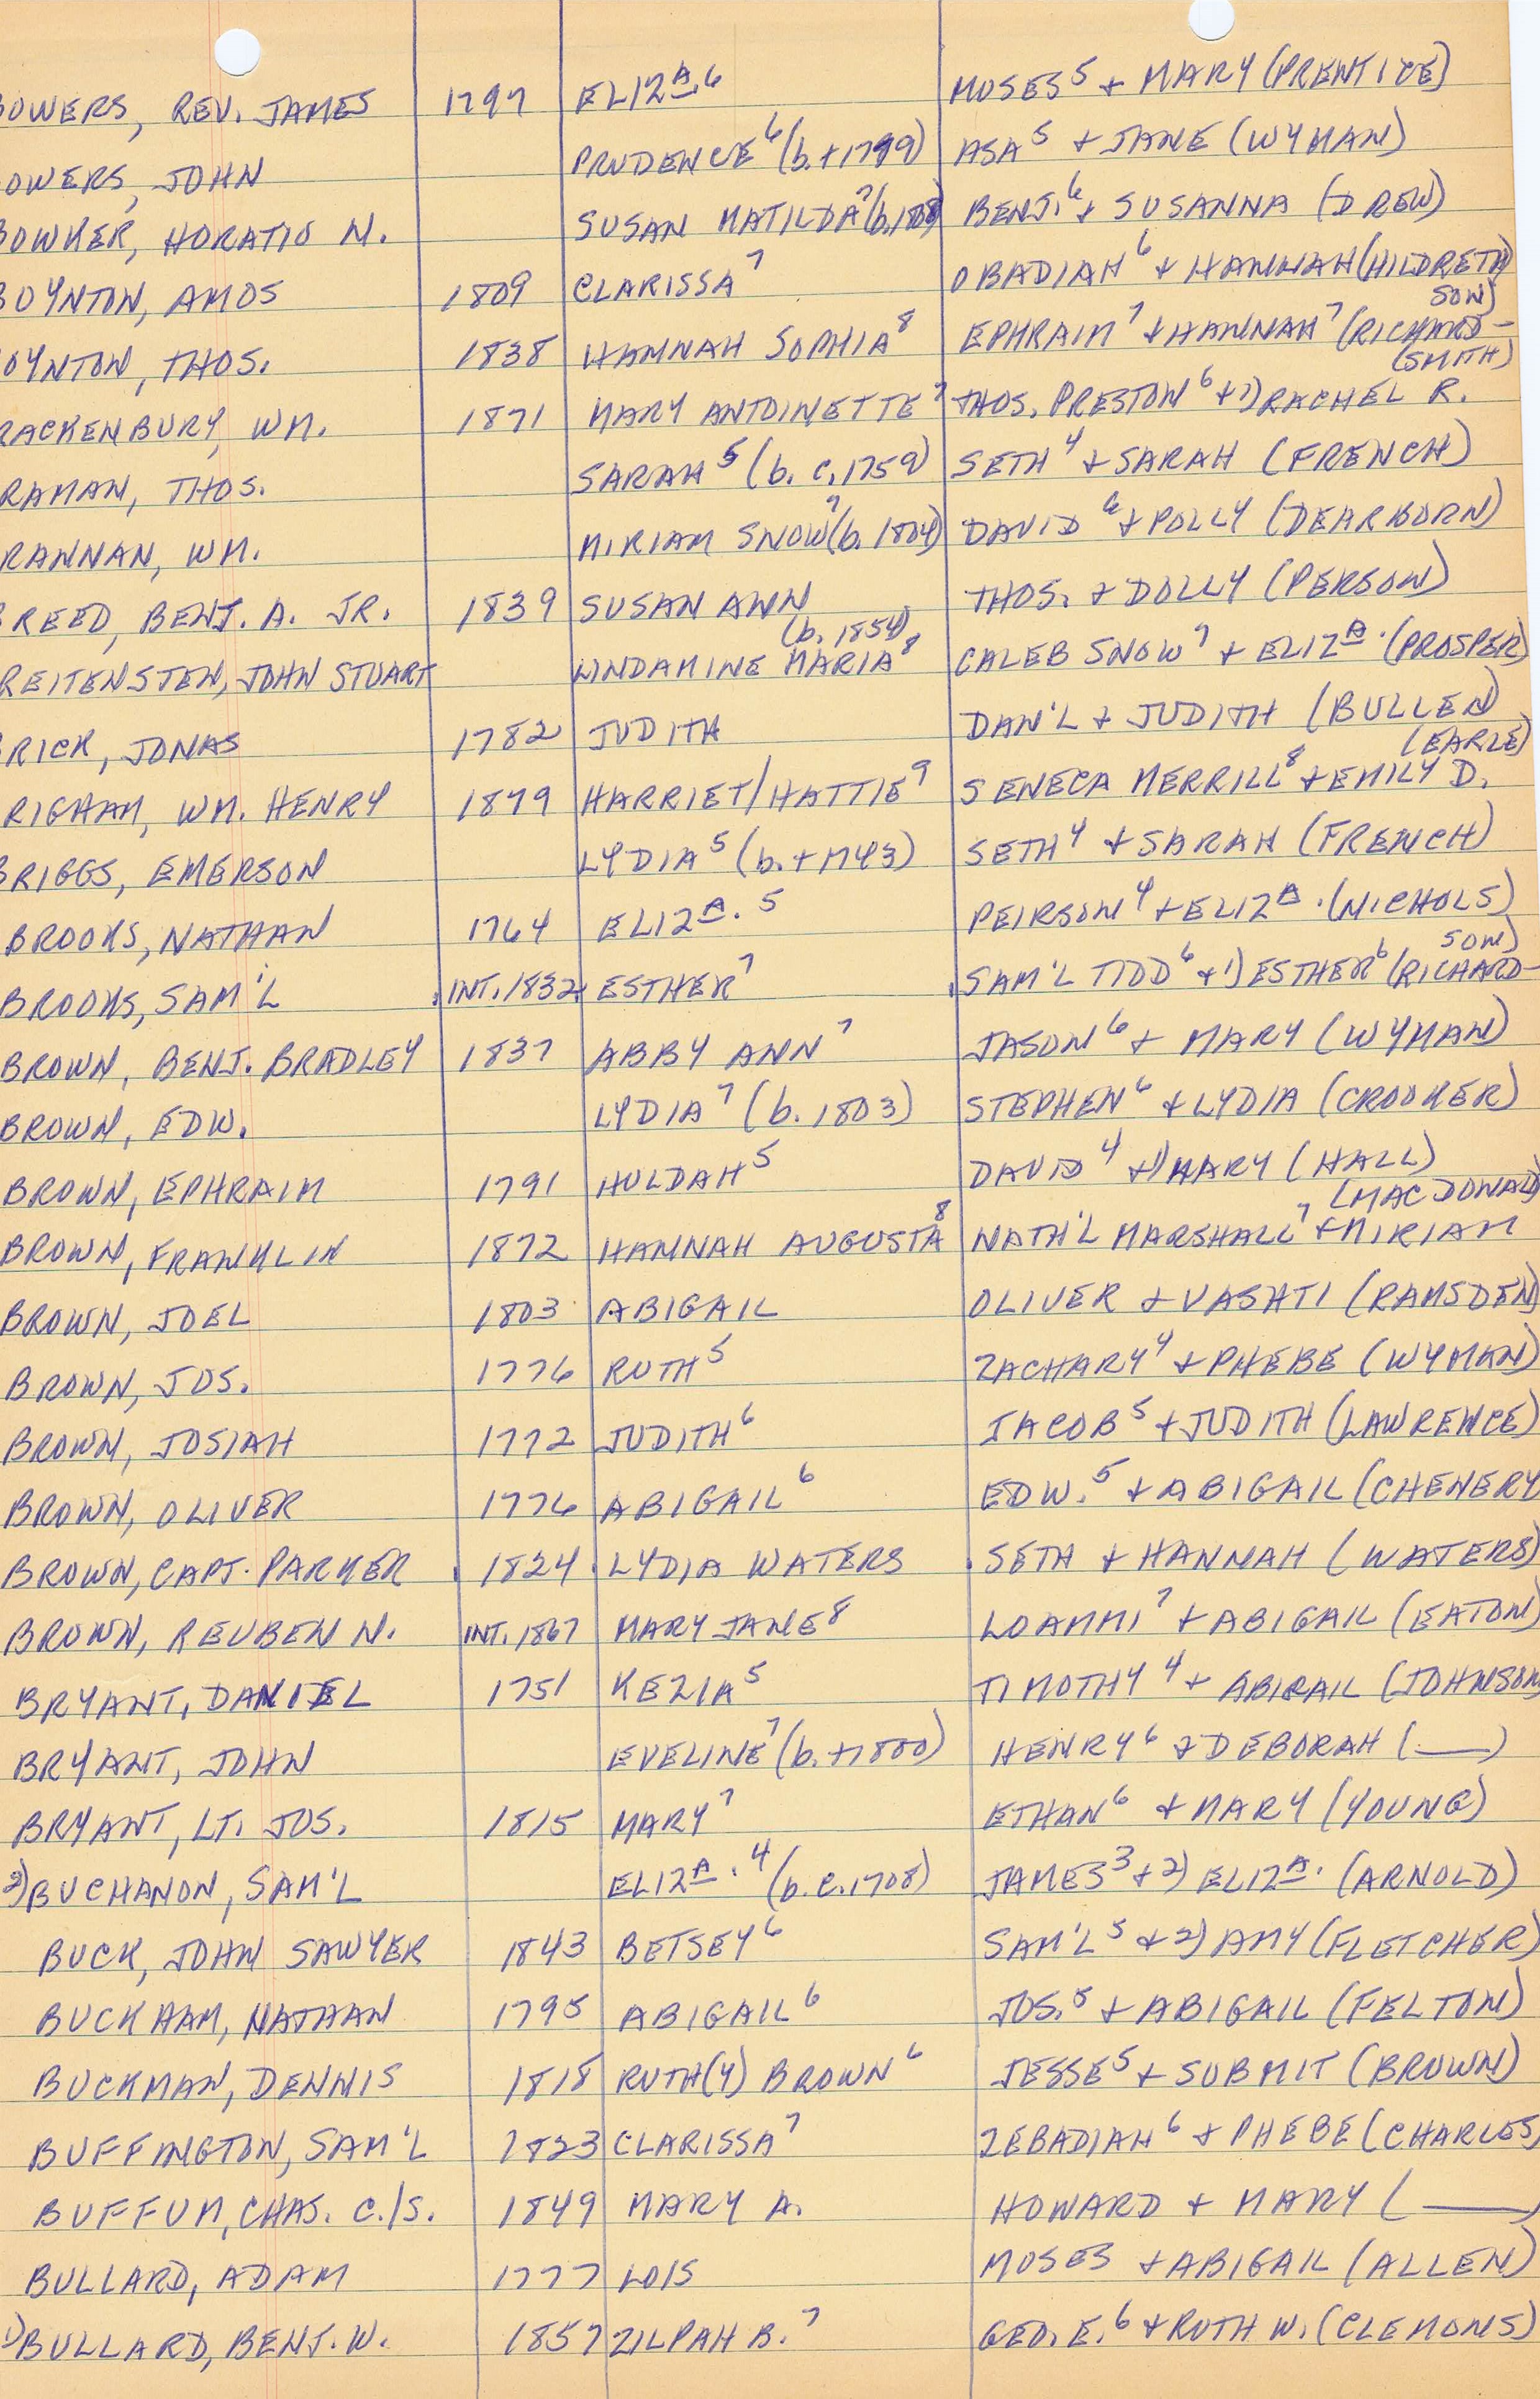 BOWERS, REV. JAMES 1797 ELIZA.6 MOSES5 + MARY (PRENTICE)
OWERS, JOHN PRUDENCE6 (b.+1799) ASA5 + JANE (WYMAN)
BOWKER, HORATIO N. SUSAN MATILDA7 (b.1808) BENJ.6 + SUSANNA (DREW)
BOYNTON, AMOS 1809 CLARISSA7 OBADIAH6 + HANNAH (HILDRETH)
OYNTON, THOS. 1838 HANNAH SOPHIA8 EPHRAIM7 + HANNAH7 (RICHARD-SON)
RACKENBURY, WM. 1871 MARY ANTOINETTE7 THOS. PRESTON6 + 1) RACHEL R. (SMITH)
RAMAN, THOS. SARAH5 (b. c.1759) SETH4 + SARAH (FRENCH)
RANNAN, WM. MIRIAM SNOW7 (b. 1804) DAVID6 + POLLY (DEARBORN)
BREED, BENJ. A. JR. 1839 SUSAN ANN THOS. + DOLLY (PERSON)
REITENSTEN, JOHN STUART MARIA8 (b. 1854) CALEB SNOW7 + ELIZA. (PROSPER)
BRICK, JONAS 1782 JUDITH DAN'L + JUDITH (BULLEN)
RIGHAM, WM. HENRY 1879 HARRIET/HATTIE9 SENECA MERRILL8 + EMILY D. (EARLE)
BRIGGS, EMERSON LYDIA5 (b.+1743) SETH4 + SARAH (FRENCH)
BROOKS, NATHAN 1764 ELIZA.5 PEIRSON4 + ELIZA. (NICHOLS)
BROOKS, SAM'L INT. 1832 ESTHER7 SAM'L TIDD6 + 1) ESTHER6 (RICHARD-SON)
BROWN, BENJ. BRADLEY 1837 ABBY ANN7 JASON6 + MARY (WYMAN)
BROWN, EDW. LYDIA7 (b. 1803) STEPHEN6 + LYDIA (CROOKER)
BROWN, EPHRAIM 1791 HULDAH5 DAVID4 + 1) MARY (HALL)
BROWN, FRANKLIN 1872 HANNAH AUGUSTA8 NATH'L MARSHALL7 + MIRIAM (MACDONALD)
BROWN, JOEL 1803 ABIGAIL OLIVER + VASHTI (RAMSDEN)
BROWN, JOS. 1776 RUTH5 ZACHARY4 + PHEBE (WYMAN)
BROWN, JOSIAH 1772 JUDITH6 JACOB5 + JUDITH (LAWRENCE)
BROWN, OLIVER 1776 ABIGAIL6 EDW.5 + ABIGAIL (CHENERY
BROWN, CAPT. PARKER 1824 LYDIA WATERS SETH + HANNAH (WATERS)
BROWN, REUBEN N. INT. 1867 MARY JANE8 LOAMMI7 + ABIGAIL (EATON)
BRYANT, DANIEL 1751 KEZIA5 TIMOTHY4 + ABIGAIL (JOHNSON
BRYANT, JOHN EVELINE7 (b.+1800) HENRY6 + DEBORAH (___)
BRYANT, LT. JOS. 1815 MARY7 ETHAN6 + MARY (YOUNG)
2) BUCHANON, SAM'L ELIZA.4 (b.c.1708) JAMES3 + 2) ELIZA. (ARNOLD)
BUCK, JOHN SAWYER 1843 BETSEY6 SAM'L5 + 2) AMY (FLETCHER)
BUCKHAM, NATHAN 1795 ABIGAIL6 JOS.5 + ABIGAIL (FELTON)
BUCKMAN, DENNIS 1818 RUTH(Y) BROWN6 JESSE5 + SUBMIT (BROWN)
BUFFINGTON, SAM'L 1823 CLARISSA7 ZEBADIAH6 + PHEBE (CHARLES)
BUFFUM, CHAS. C./S. 1849 MARY A. HOWARD + MARY (___)
BULLARD, ADAM 1777 LOIS MOSES + ABIGAIL (ALLEN)
1) BULLARD, BENJ. W. 1857 ZILPAH B.7 GEO. E.6 + RUTH W. (CLEMONS)